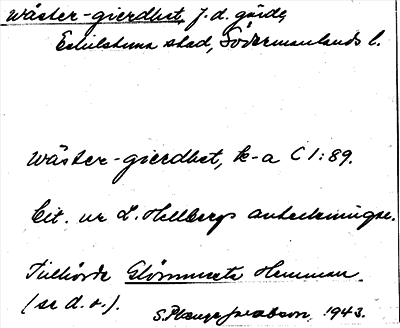 Wäster-gierdhet, f. d. gärde,
Eskilstuna stad, Södermanlands l.
Wäster-gierdhet, k-a C 1:89.
Cit. ur L. Hellbergs anteckningar.
Tillhörde Glömmesta Hemman.
(se d. o.).
S. Jacobson, 1943.